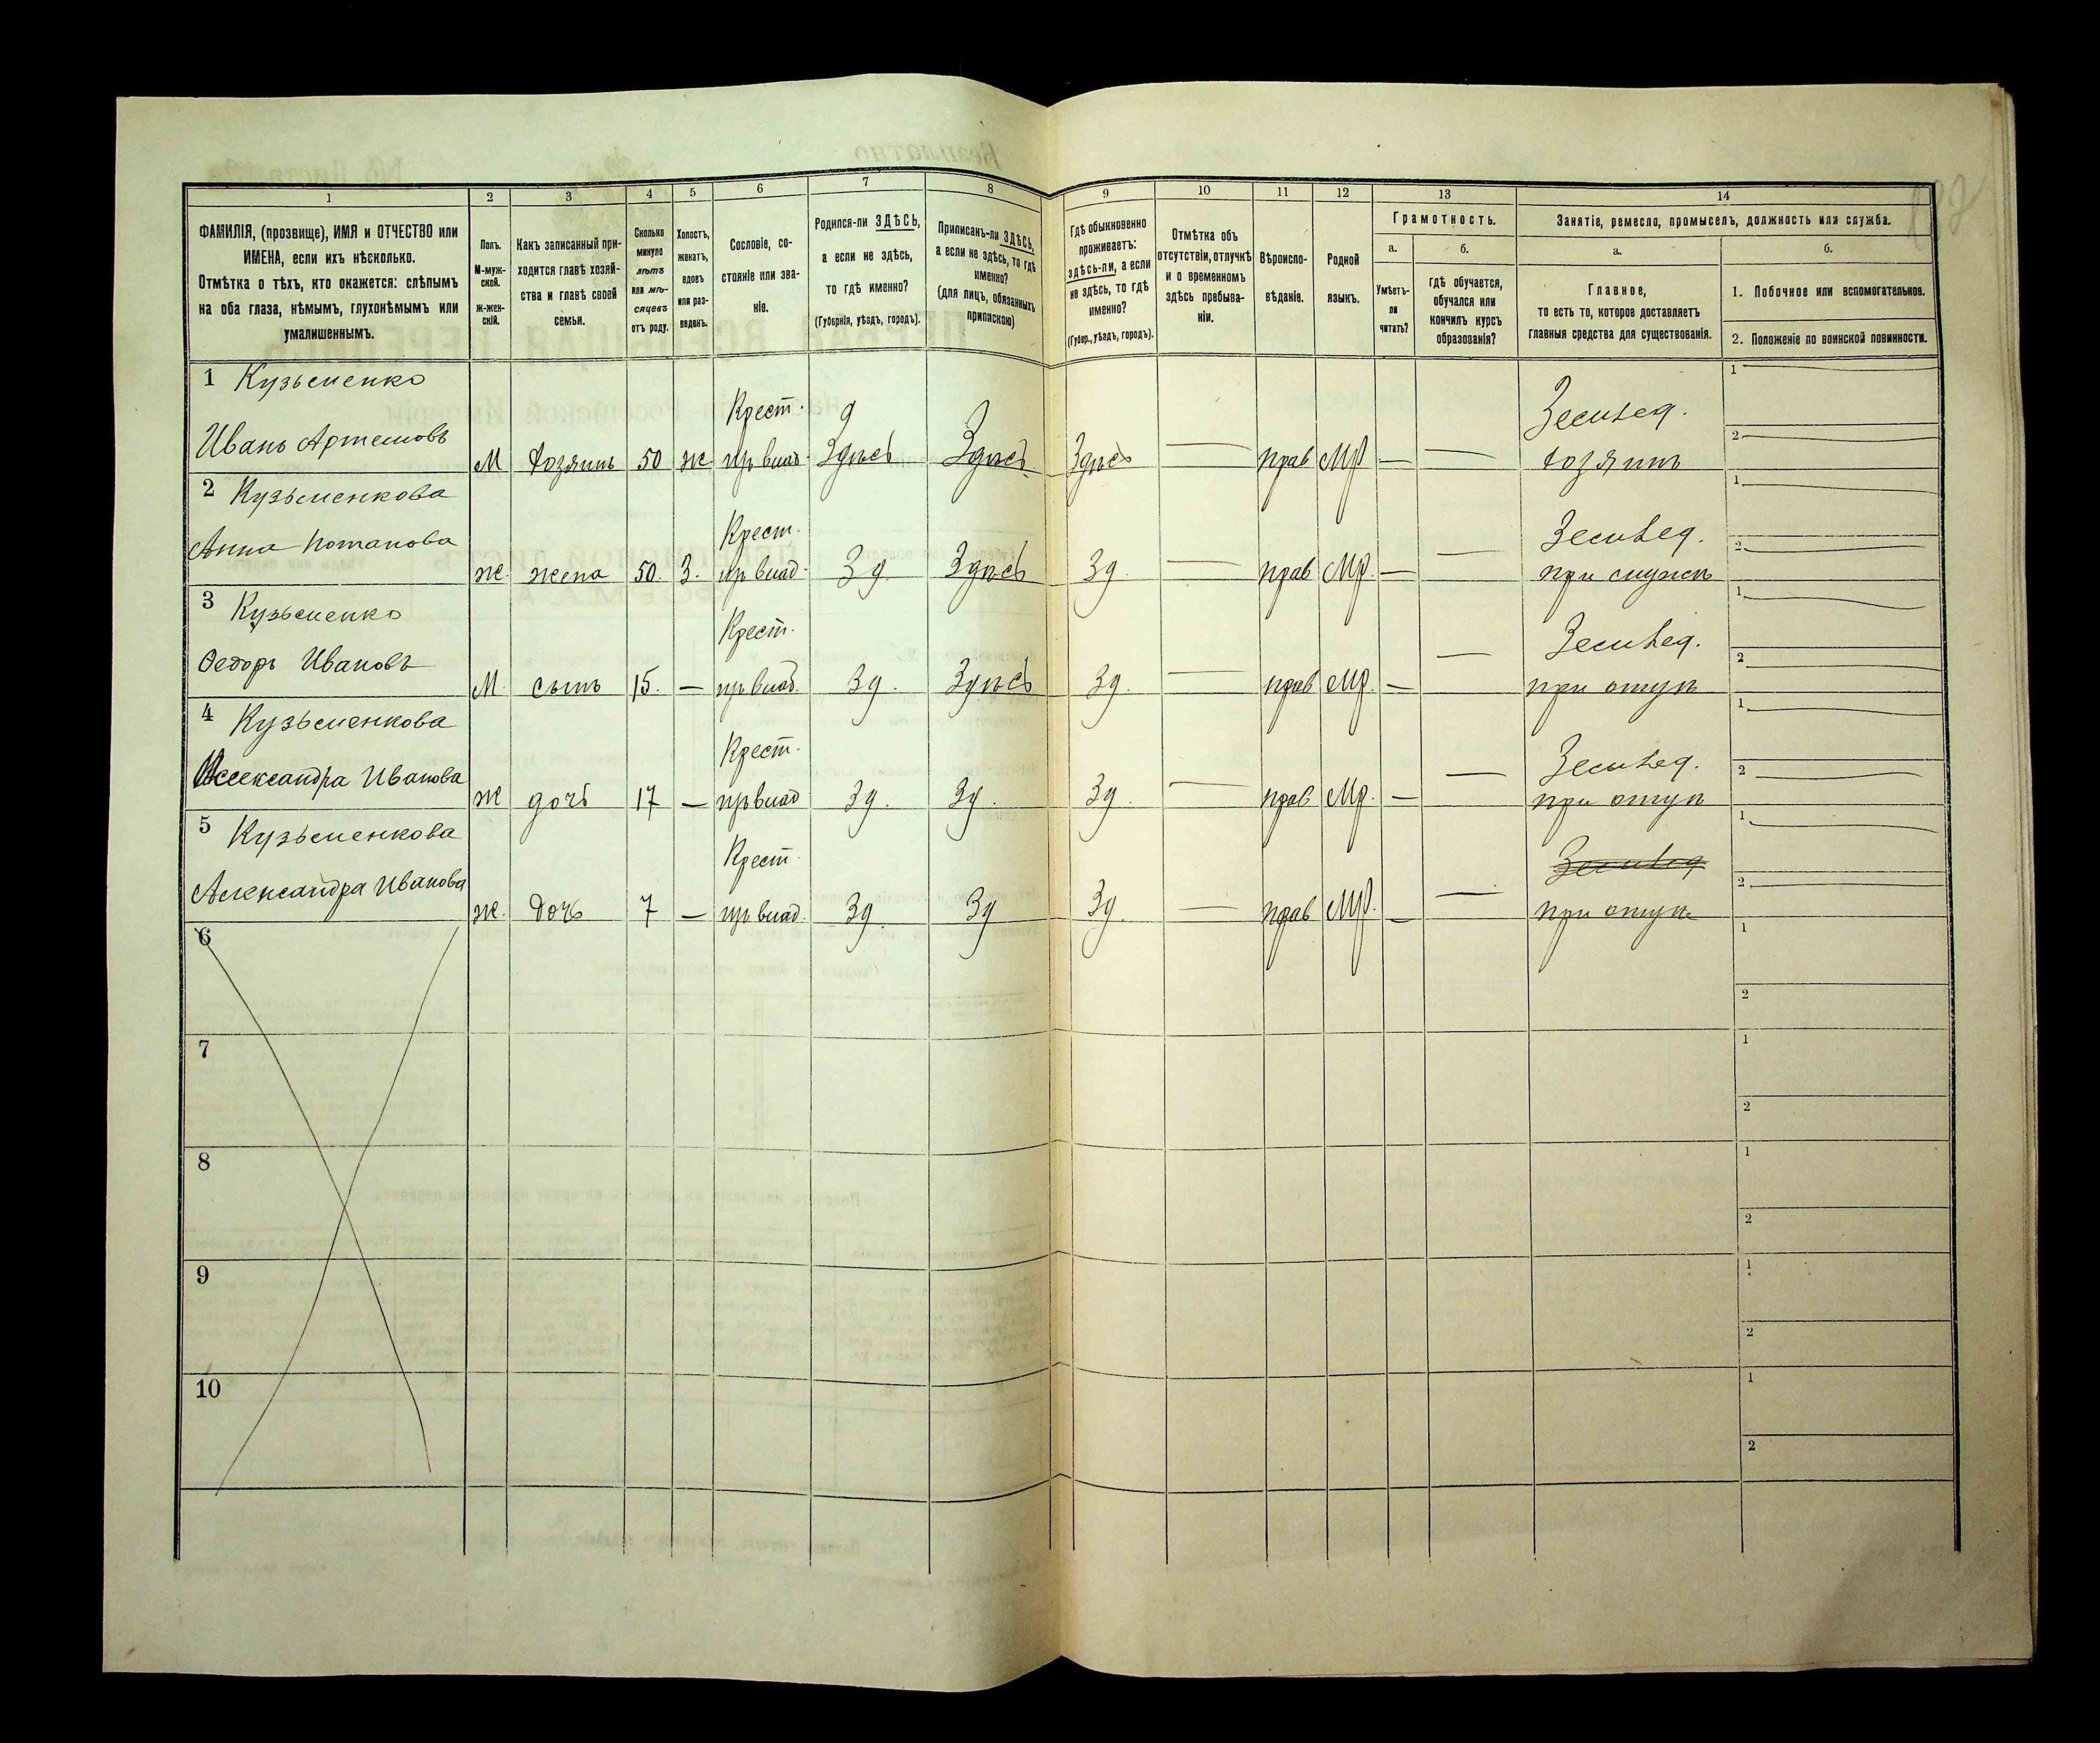 1 2 3 4 5 6 7 8 9 10 11 12 13 14
ФАМИЛІЯ, (прозвище), ИМЯ и ОТЧЕСТВО или
ИМЕНА, если ихъ нѣсколько.
Отмѣтка о тѣхъ, кто окажется: слѣпымъ
на оба глаза, нѣмымъ, глухонѣмымъ или
умалишеннымъ.
Полъ.
М-муж-
ской.
Ж-жен-
скій.
Какъ записанный при-
ходится главѣ хозяй-
ства и главѣ своей
семьи.
Сколько
минуло
лѣтъ
или мѣ-
сяцевъ
отъ роду.
Холостъ,
женатъ,
вдовъ
или раз-
веденъ.
Сословіе, со-
стояніе или зва-
ніе.
Родился-ли ЗДѢСЬ,
а если не здѣсь,
то гдѣ именно?
(Губернія, уѣздъ, городъ).
Приписанъ-ли ЗДѢСЬ,
а если не здѣсь, то гдѣ
именно?
(для лицъ, обязанныхъ
припискою)
Гдѣ обыкновенно
проживаетъ:
здѣсь-ли, а если
не здѣсь, то гдѣ
именно?
(Губер., уѣздъ, городъ).
Отмѣтка объ
отсутствіи, отлучкѣ
и о временномъ
здѣсь пребыва-
ніи.
Вѣроиспо-
вѣданіе.
Родной
языкъ.
Грамотность.
а.
Умѣетъ-
ли
читать?
б.
Гдѣ обучается,
обучался или
кончилъ курсъ
образованія?
Занятіе, ремесло, промыселъ, должность или служба.
а.
Главное,
то есть то, которое доставляетъ
главныя средства для существованія.
б.
1. Побочное или вспомогательное.
2. Положеніе по воинской повинности.
1 Кузьменко Крест. Землед. 1
Иванъ Артемовъ М Хозяинъ 50 ж пр влад. Здѣсь Здѣсь Здѣсь — прав Мр — — хозяинъ 2
2 Кузьменкова Крест. Землед. 1
Анна Потапова Ж. жена 50. З. пр влад. Зд. Здѣсь Зд. — прав Мр. — — при мужѣ 2
3 Кузьменко Крест. Землед. 1
Федоръ Ивановъ М. сынъ 15. — пр влад. Зд. Здѣсь Зд. — прав Мр. — — при отцѣ 2
4 Кузьменкова Крест. Землед. 1
Александра Иванова Ж дочь 17 — пр влад Зд. Зд. Зд. — прав Мр. — — при отцѣ 2
5 Кузьменкова Крест Землед 1
Александра Иванова Ж. Дочь 7 — пр влад. Зд Зд Зд. — прав Мр. — — при отцѣ 2
6 1
2
7 1
2
8 1
2
9 1
2
10 1
2